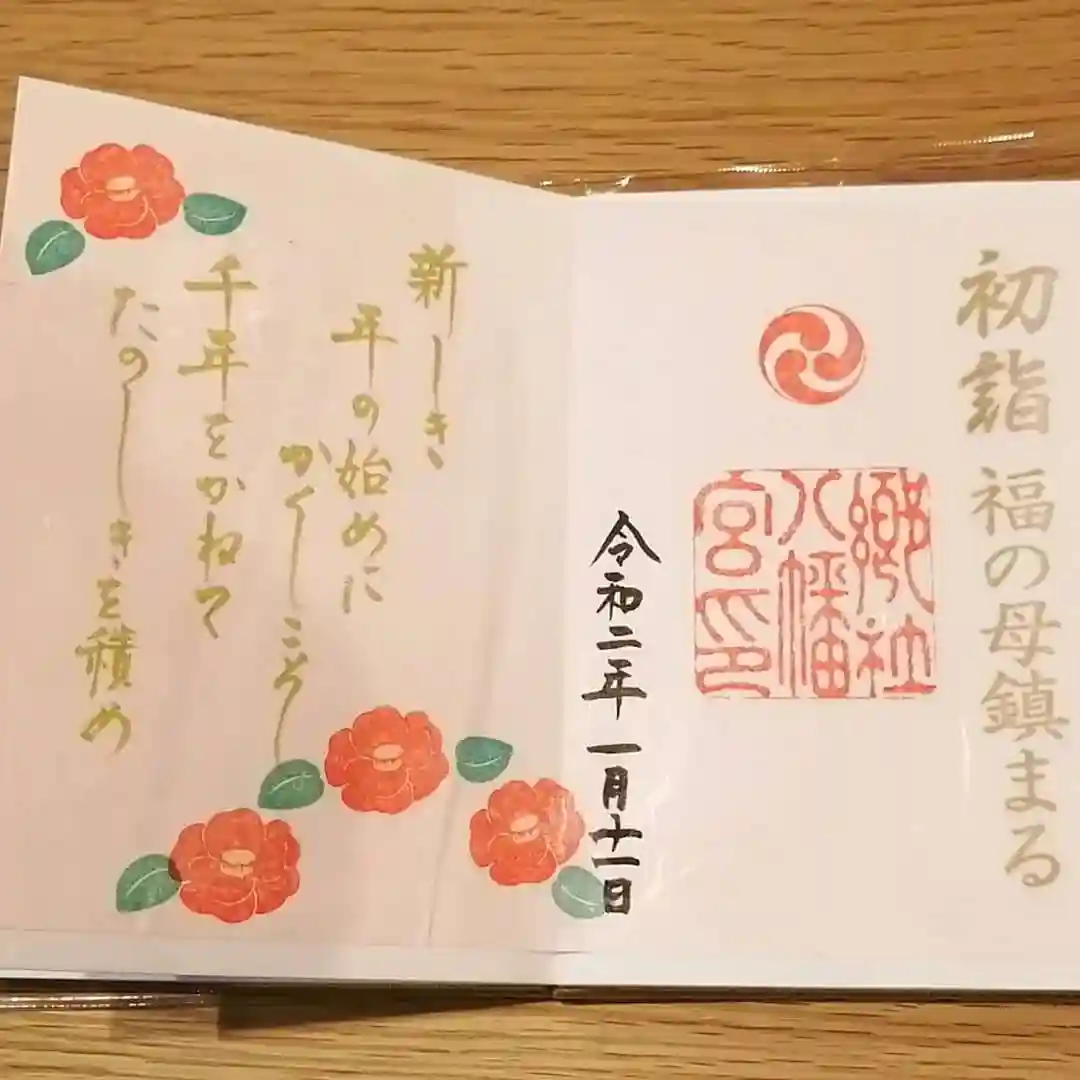 初詣 福の母鎮まる
郷社
八幡
宮印
令和二年 一月十一日
新しき
年の始めに
かくしこそ
千年をかねて
たのしきを積め